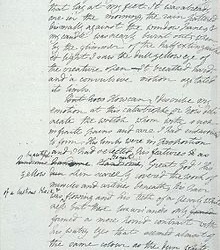 that lay at my feet. It was already
one in the morning, the rain pattered
dismally against the window panes &
my candle was nearly burnt out, when
by the glimmer of the half extinguish
ed light I saw the dull yellow eye of
the creature open. It breathed hard,
and a convulsive motion agitated
its limbs.
But how How can I describe my
emotion at this catastrophe; or how deli
neate the wretch whom with such
infinite pains and care I had endeavoured
to form. His limbs were in proportion
and I had selected his features as
handsome Great God!
yellow skin scarcely covered the work of
muscles and arteries beneath; his hair
of a lustrous black &
was flowing and his teeth of a pearly white
ness but these luxuriances only formed
a more horrid contrast with
his watry eyes that seemed almost of
the same colour as the dun